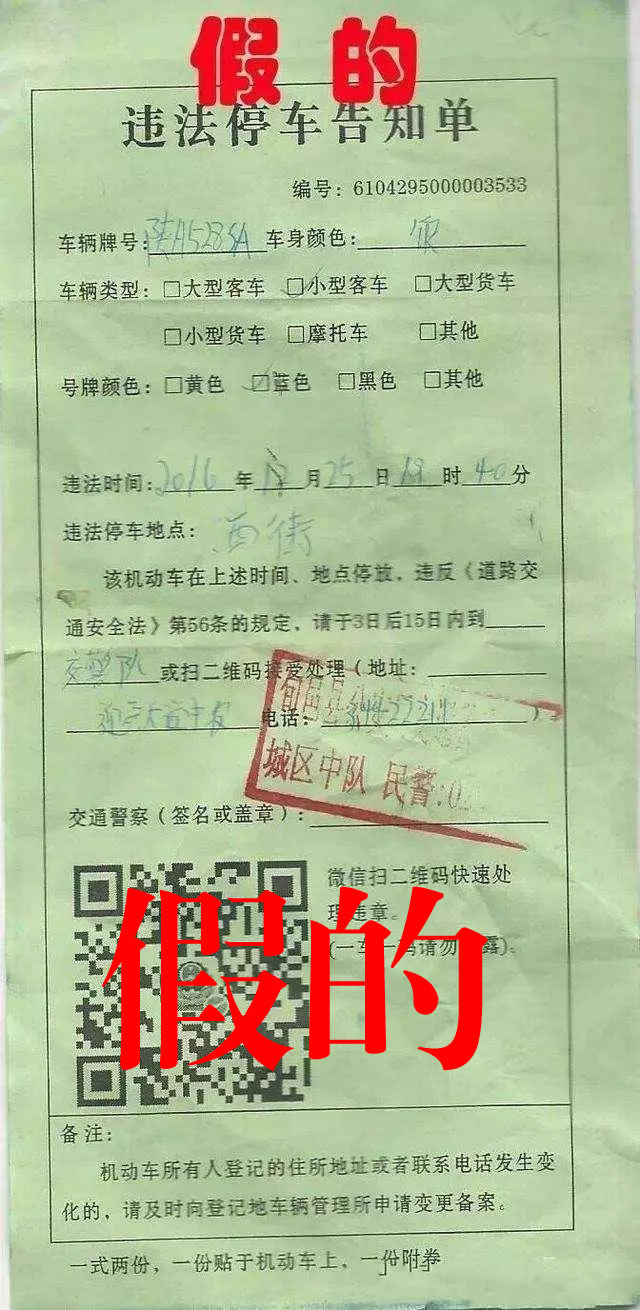 假的
违法停车告知单
编号：6104295000003533
车辆牌号：陕A528SA 车身颜色：银
车辆类型：□大型客车 □小型客车 □大型货车
□小型货车 □摩托车 □其他
号牌颜色：□黄色 □蓝色 □黑色 □其他
违法时间：2016年12月25日19时40分
违法停车地点：西街
该机动车在上述时间、地点停放，违反《道路交
通安全法》第56条的规定，请于3日后15日内到
交警队 或扫二维码接受处理（地址：
电话： ）
旬邑县
城区中队 民警:0
交通警察（签名或盖章）：
微信扫二维码快速处
理违章。
(一车一码请勿 露)。
假的
备注：
机动车所有人登记的住所地址或者联系电话发生变
化的，请及时向登记地车辆管理所申请变更备案。
一式两份，一份贴于机动车上，一份附卷